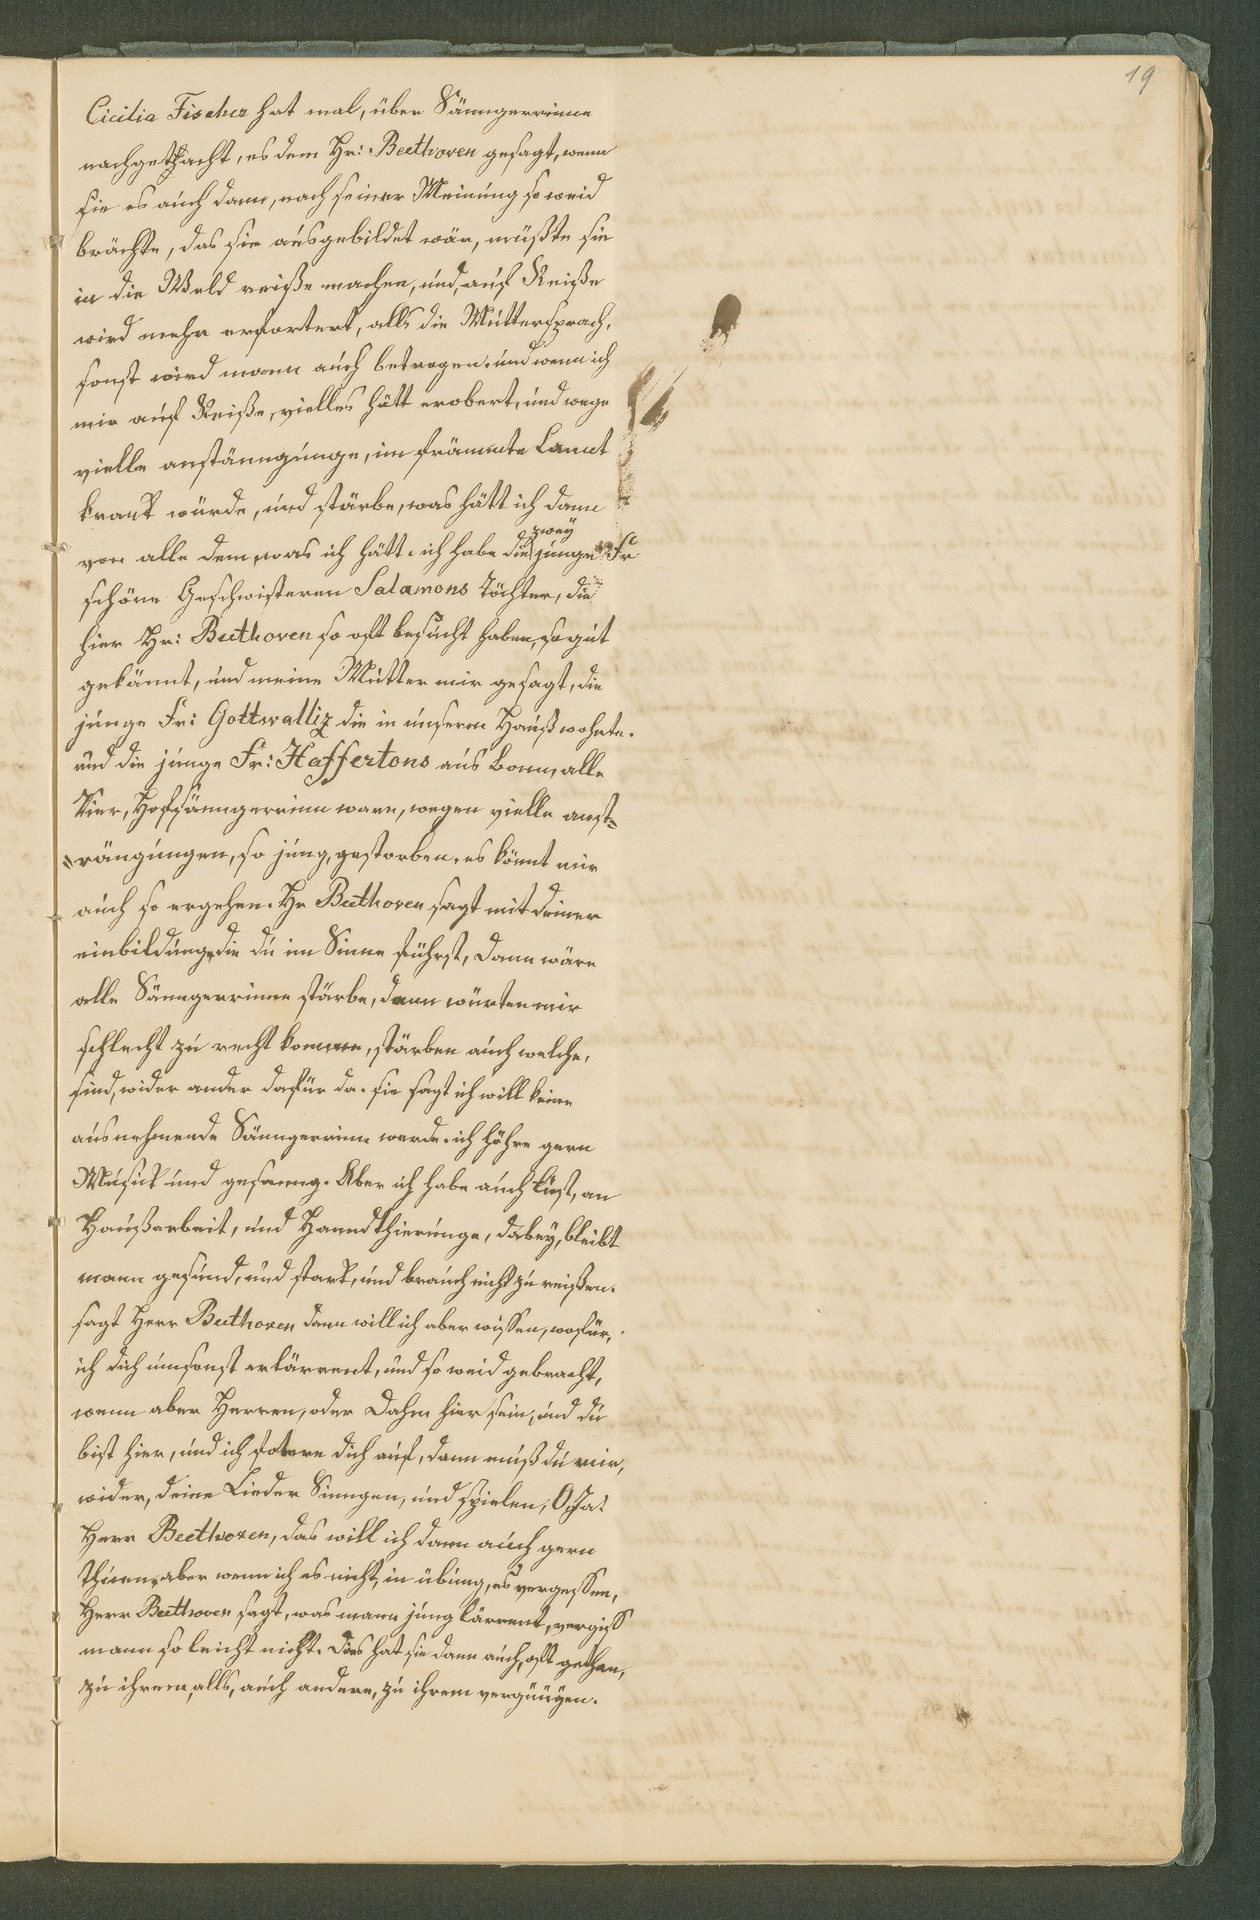 19
Cicilia Fischer hat mal, über Sänngerrinne
nachgethacht, es dem Hr: Beethoven gesagt, wenn
sie es auch dann, nach seiner Meinung so weid
brächte, das sie ausgebildet wär, müßte sie
in die Weld reiße machen, und, auf Reiße
wird mehr erfortert, alls die Muttersprach,
sonst wird mann auch betrogen. und wenn ich
mir auf Reiße, vielles hätt erobert, und wege
vielle anstänngunge, im främmte Lannt
krank würde, und stärbe, was hätt ich dann
von alle dem, was ich hätt. ich habe die zwey junge Fr
schöne Geschwisteren Salamons Töchter, die
hier Hr: Beethoven so oft besucht haben, so gut
gekännt, und meine Mutter mir gesagt, die
junge Fr: Gottwalliz die in unserem Hauß wohnte.
und die junge Fr: Haffertons aus Bonn, alle
Vier, Hofsänngerrinn ware, wegen vielle anst=
=rängungen, so jung, gestorben. es könnt mir
auch so ergehen. Hr Beethoven sagt mit deiner
einbildung, die du im Sinne führst, dann wäre
alle Sänngerrinne stärbe, dann würten mir
schlecht zu recht kommen, stärben auch welche,
sind, wider ander dafür da. sie sagt ich will keine
ausnehmende Sänngerrinn werde. ich höhre gern
Musick und gesanng. Aber ich habe auch lust, an
Haußarbeit, und Hanndthierunge, dabey, bleibt
mann gesund, und stark, und brauch nicht zu reißen.
sagt Herr Beethoven dann will ich aber wissen, wofür,
ich dich umsonst erlärrent, und so weid gebracht,
wenn aber Herren, oder Dahm hier sein, und du
bist hier, und ich fotere dich auf, dann muß du mir,
wider, deine Lieder Sinngen, und spielen, O Ja!
Herr Beethoven, das will ich dann auch gern
thuen, aber wenn ich es nicht, in übung, es vergessen,
Herr Beethoven sagt, was mann jung lärrent, vergiss
mann so leicht nicht. Dies hat sie dann auch, oft gethan,
zu ihrem, alls, auch andere, zu ihrem vergnügen.